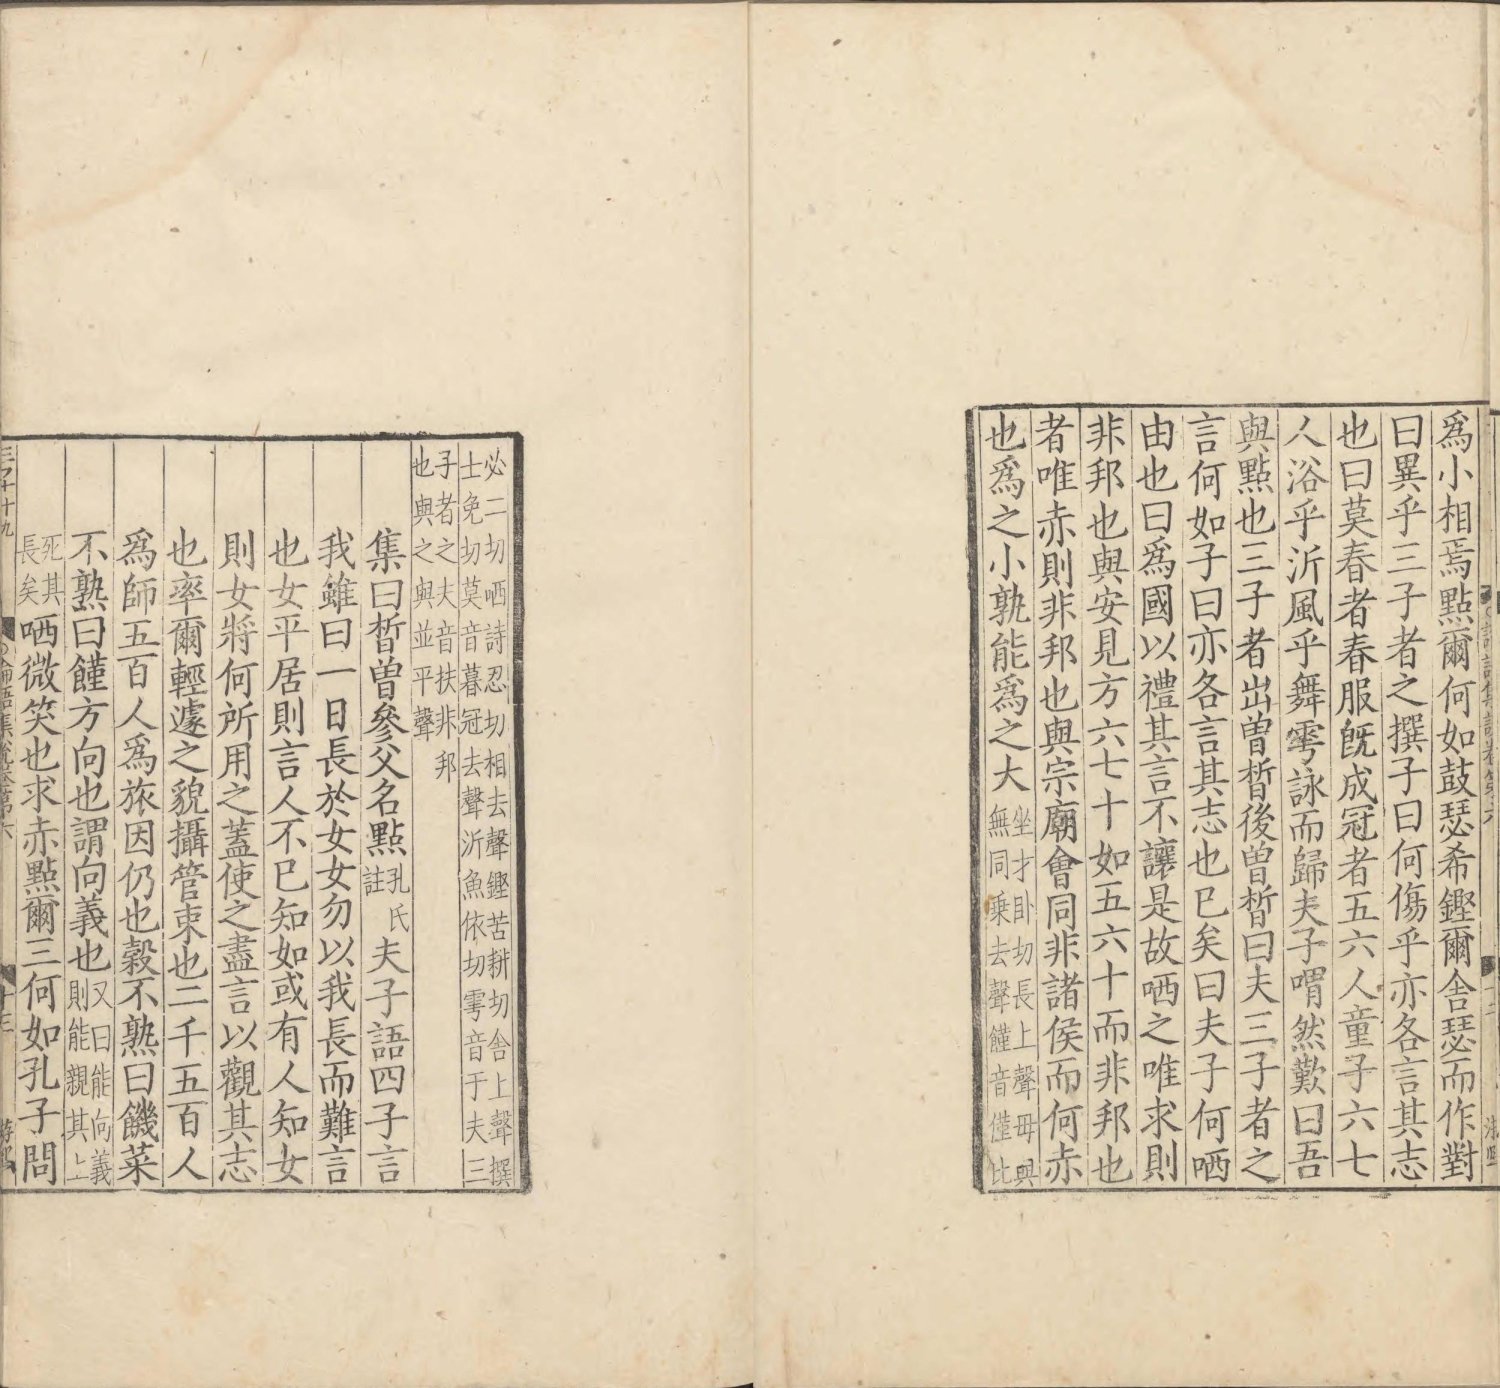 爲小相焉點爾何如鼓瑟希鏗爾舍瑟而作對
曰異乎三子者之撰子曰何傷乎亦各言其志
也曰莫春者春服旣成冠者五六人童子六七
人浴乎沂風乎舞雩詠而歸夫子喟然歎曰吾
與點也三子者出曾晳後曾晳曰夫三子者之
言何如子曰亦各言其志也巳矣曰夫子何哂
由也曰爲國以禮其言不讓是故哂之唯求則
非邦也與安見方六七十如五六十而非邦也
者唯赤則非邦也與宗廟會同非諸侯而何赤
也爲之小孰能爲之大
坐才卧切長上聲毋與
無同乗去聲饉音僅比
必二切哂詩忍切相去聲鏗苦耕切舍上聲撰
士免切莫音暮冠去聲沂魚依切雩音于夫三
子者之夫音扶非邦
也與之與並平聲
集曰晳曾參父名點
孔氏
註
夫子語四子言
我雖曰一日長於女女勿以我長而難言
也女平居則言人不巳知如或有人知女
則女將何所用之蓋使之盡言以觀其志
也率爾輕遽之貌攝管束也二千五百人
爲師五百人爲旅因仍也穀不熟曰饑菜
不熟曰饉方向也謂向義也
又曰能向義
則能親其上
死其
長矣
哂微笑也求赤點爾三何如孔子問
十三